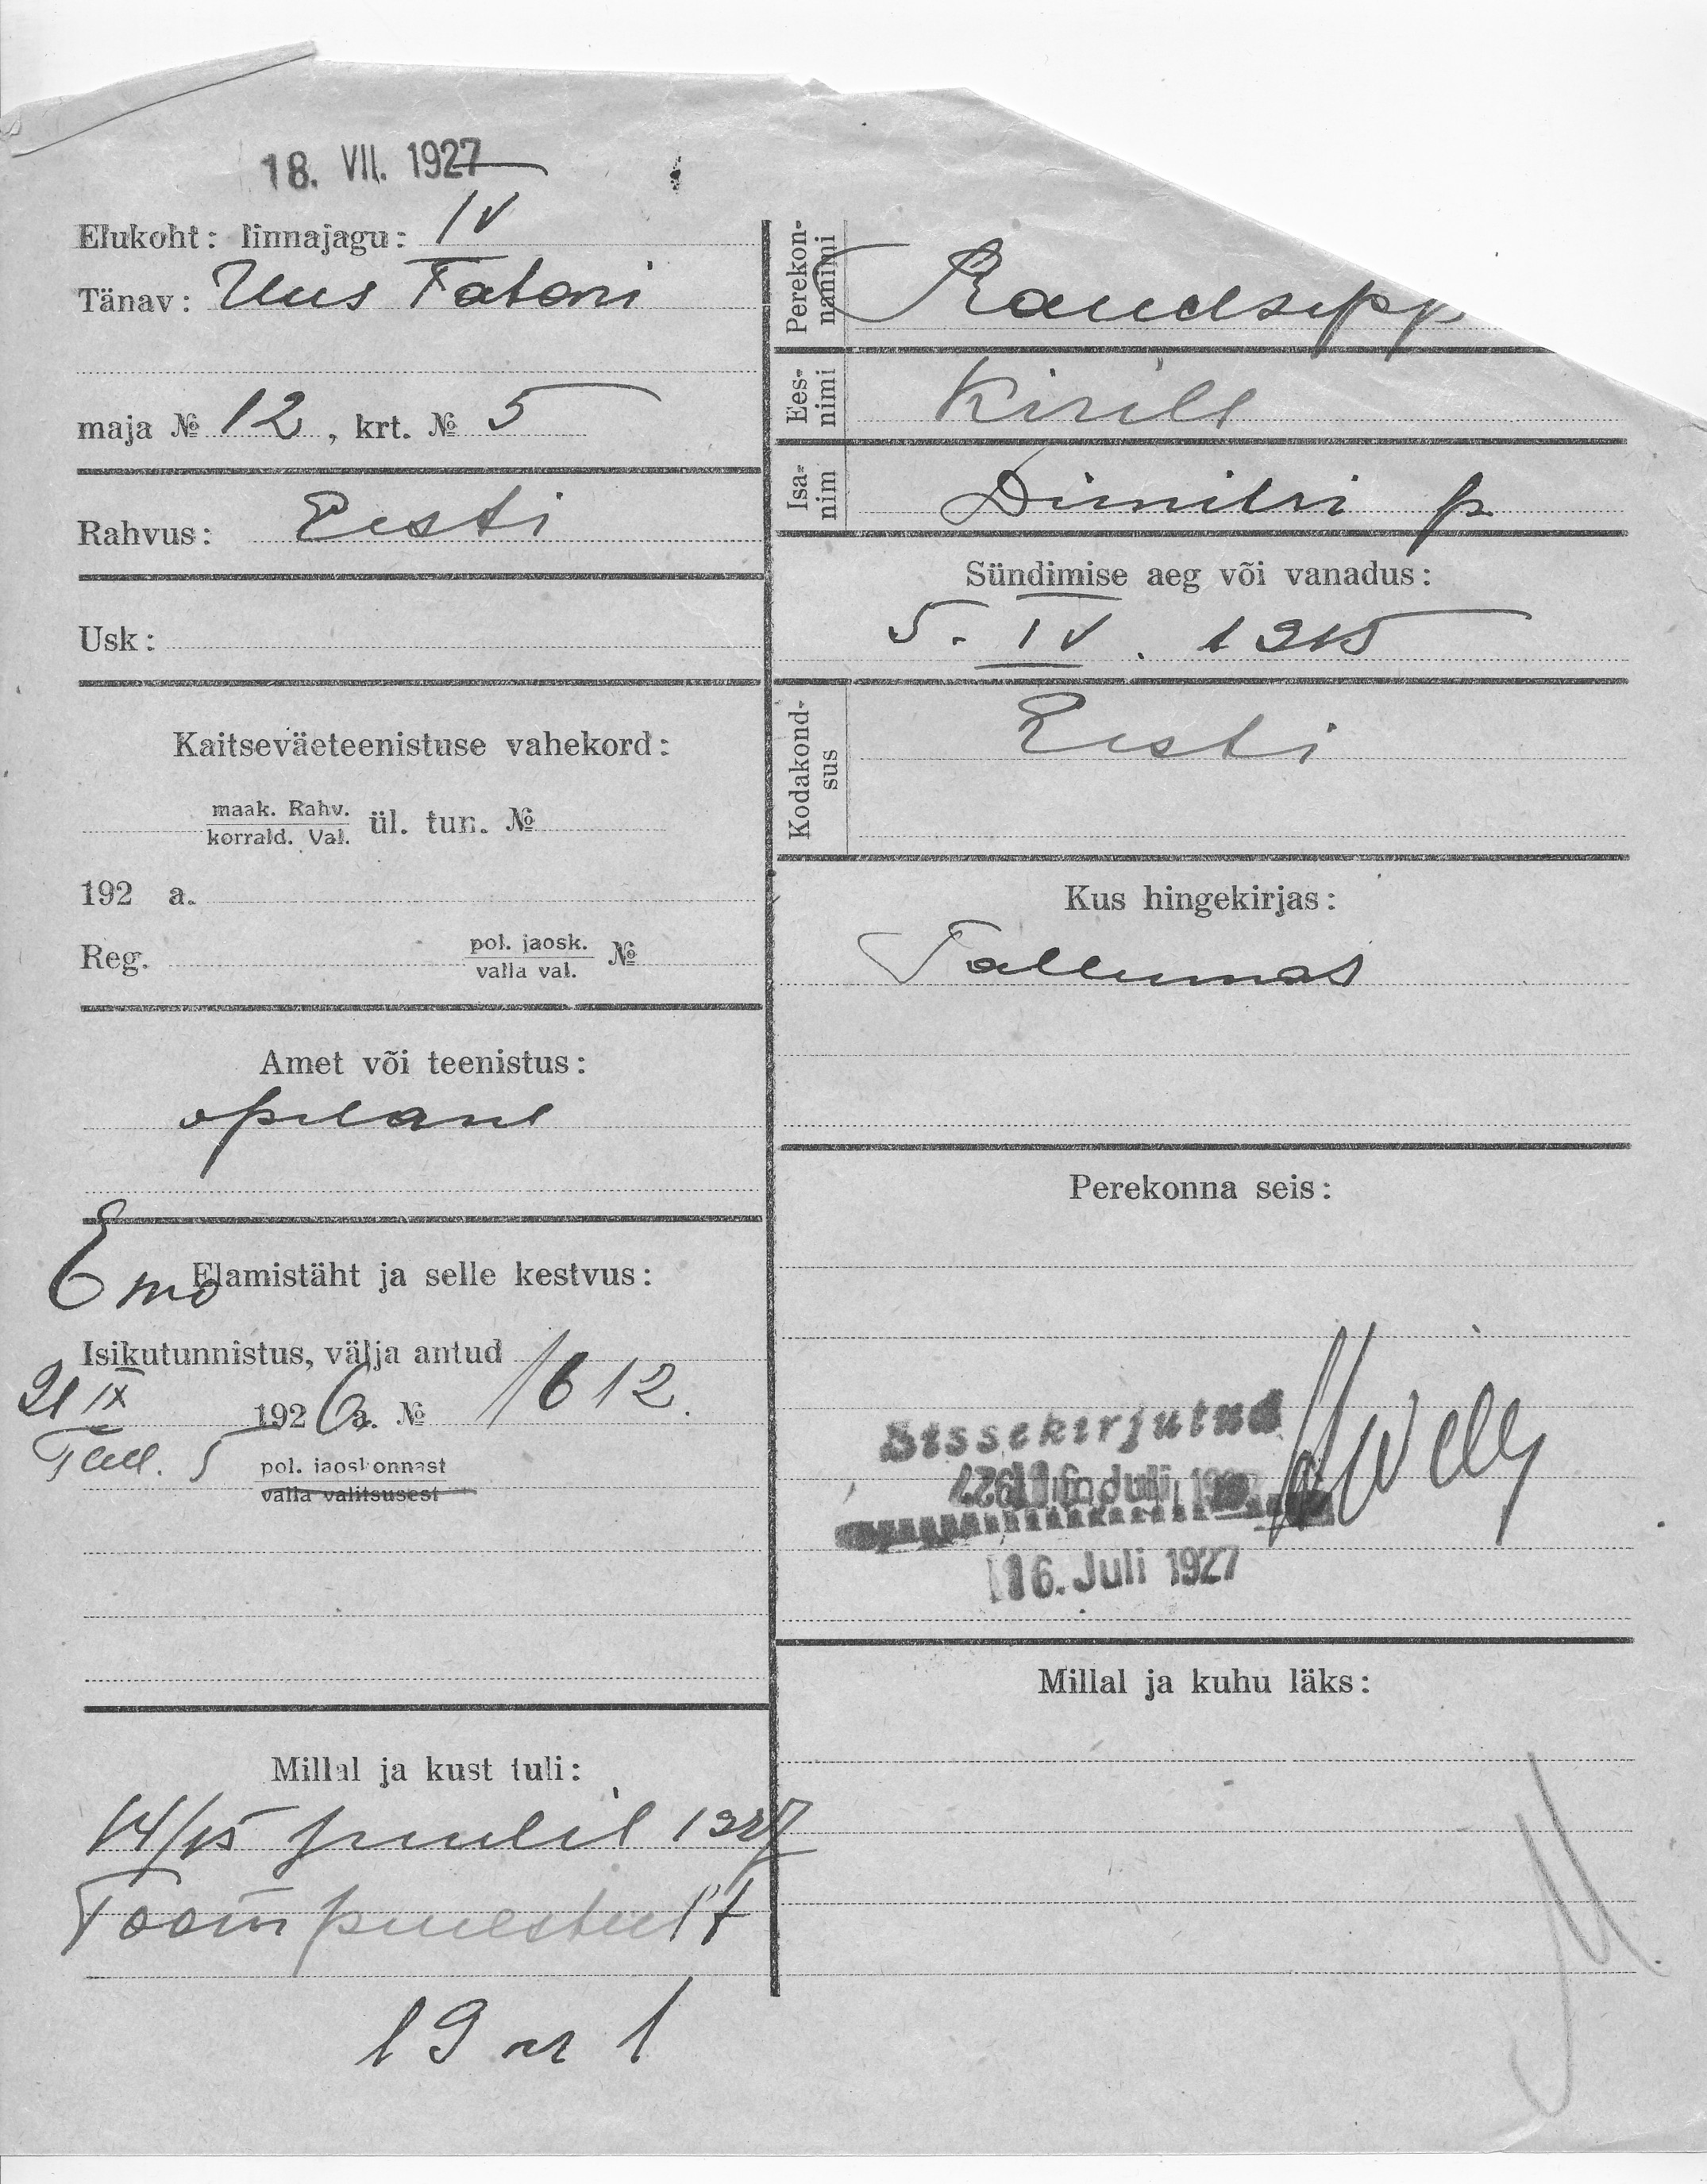 18. VII. 1927
Elukoht: linnajagu: IV
Tänav: Uus Tatari
maja № 12, krt. № 5
Rahvus: Eesti
Usk:
Kaitseväeteenistuse vahekord:
maak. Rahv.
korrald. Val. ül. tun. №
192 a.
Reg. pol. jaosk.
valla val. №
Amet või teenistus:
opilane
Emo
Elamistäht ja selle kestvus:
Isikutunnistus, välja antud
21 IX 1926 a. № 1612.
Tall. 5 pol. jaoskonnast
valla valitsusest
Millal ja kust tuli:
14/15 juulil 1927
Toompuiestee
19 nr 1
Perekonnanimi Raudsepp
Eesnimi Kirill
Isanim Dimitri p.
Sündimise aeg või vanadus:
5. IV. 1915
Kodakondsus Eesti
Kus hingekirjas:
Tallinnas
Perekonna seis:
Sissekirjutud
16. Juli 1927
Millal ja kuhu läks: